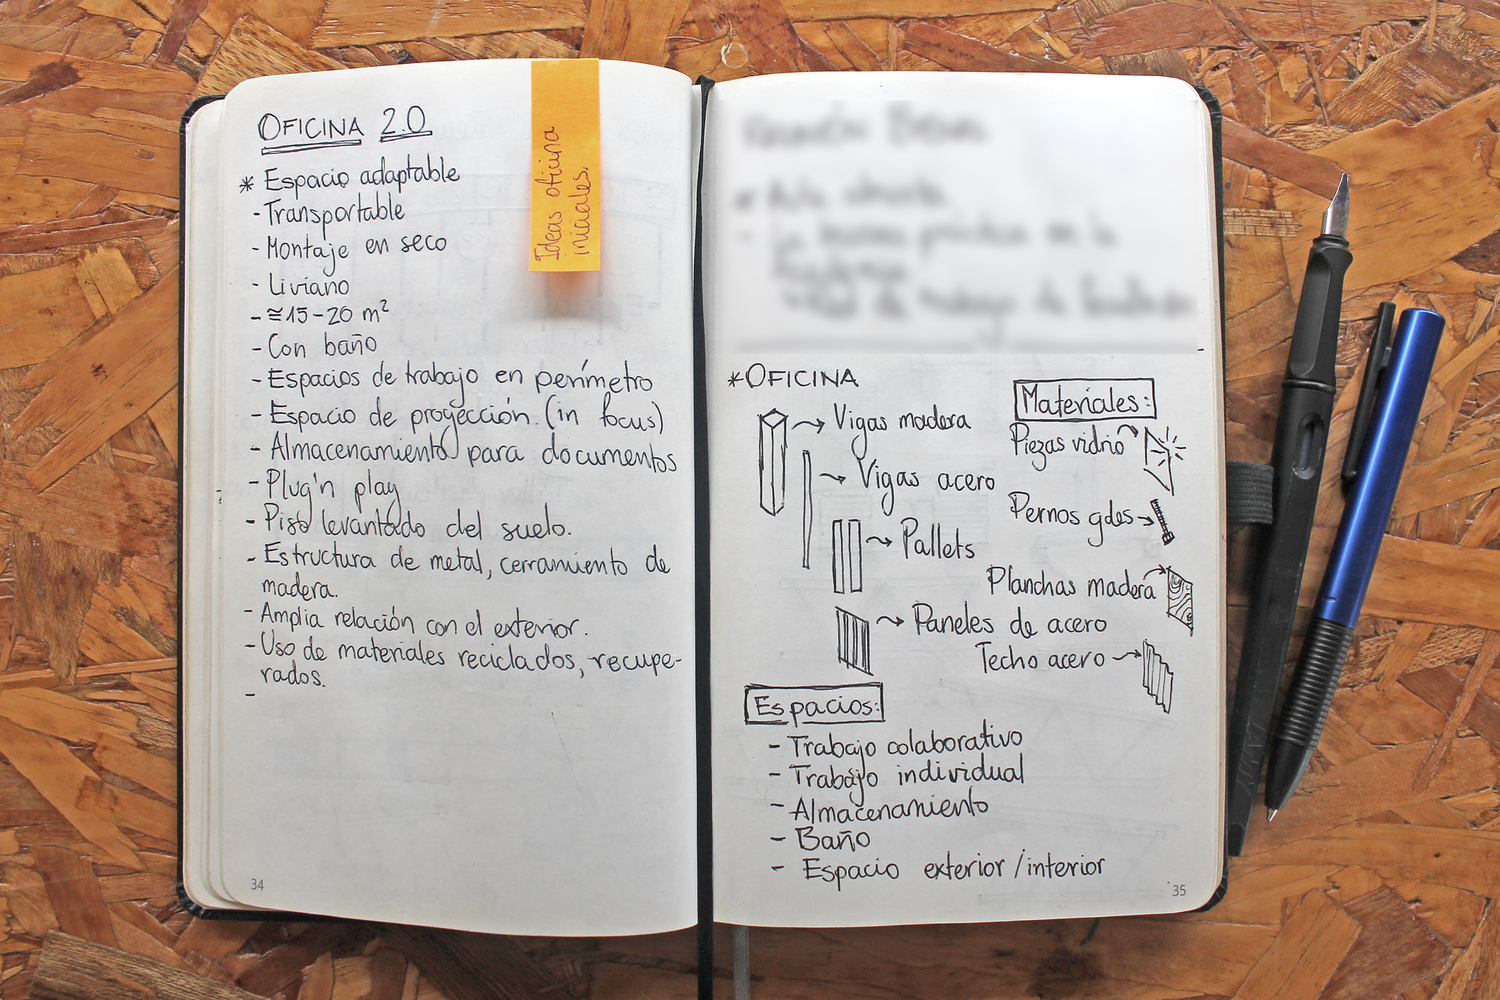 OFICINA 2.0
* Espacio adaptable
- Transportable
- Montaje en seco
- Liviano
- ≅15-20 m²
- Con baño
- Espacios de trabajo en perímetro
- Espacio de proyección. (in focus)
- Almacenamiento para documentos
- Plug'n play
- Piso levantado del suelo.
- Estructura de metal, cerramiento de
madera.
- Amplia relación con el exterior.
- Uso de materiales reciclados, recupe-
rados.
-
34
Ideas oficina
iniciales.
* OFICINA
Vigas madera
Vigas acero
Pallets
Paneles de acero
Materiales:
Piezas vidrio
Pernos gdes
Planchas madera
Techo acero
Espacios:
- Trabajo colaborativo
- Trabajo individual
- Almacenamiento
- Baño
- Espacio exterior/interior
35